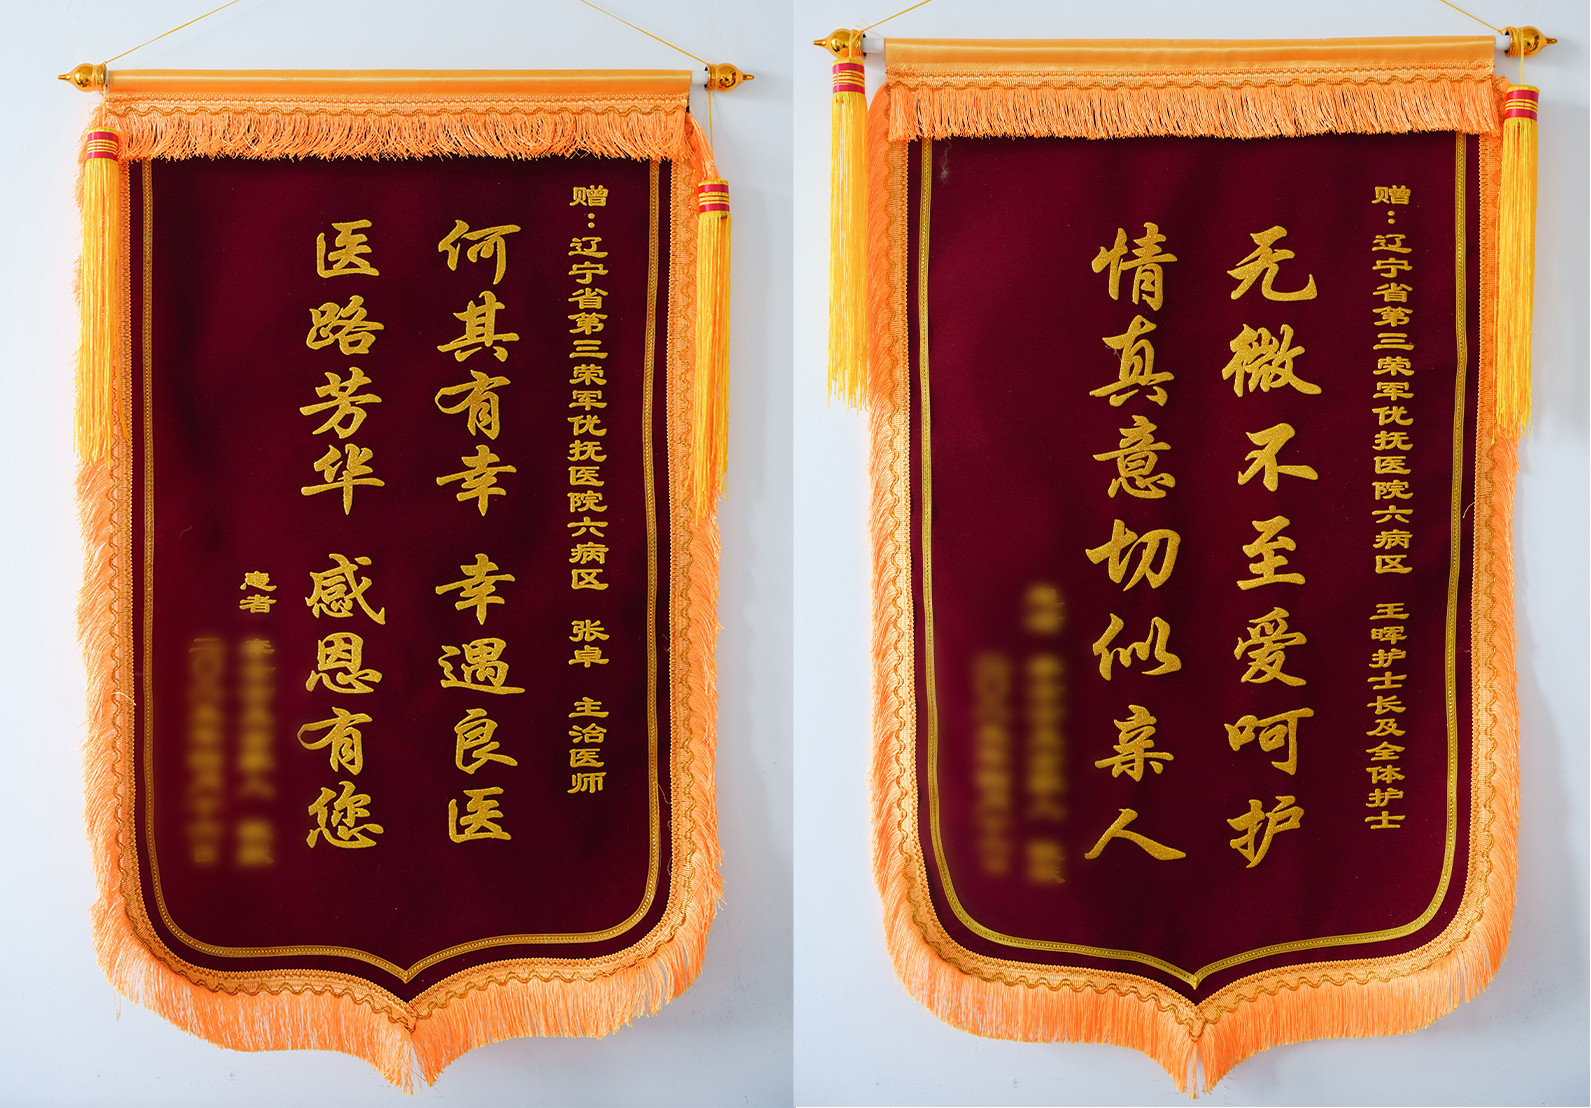 赠：辽宁省第三荣军优抚医院六病区 张卓 主治医师
何其有幸 幸遇良医
医路芳华 感恩有您
患者
赠：辽宁省第三荣军优抚医院六病区 王晖护士长及全体护士
无微不至爱呵护
情真意切似亲人